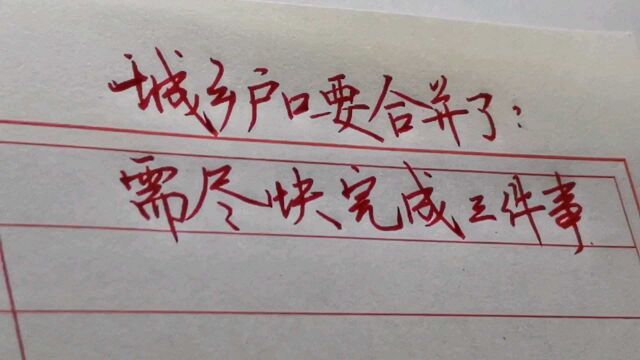 城乡户口要合并了:
需尽快完成三件事